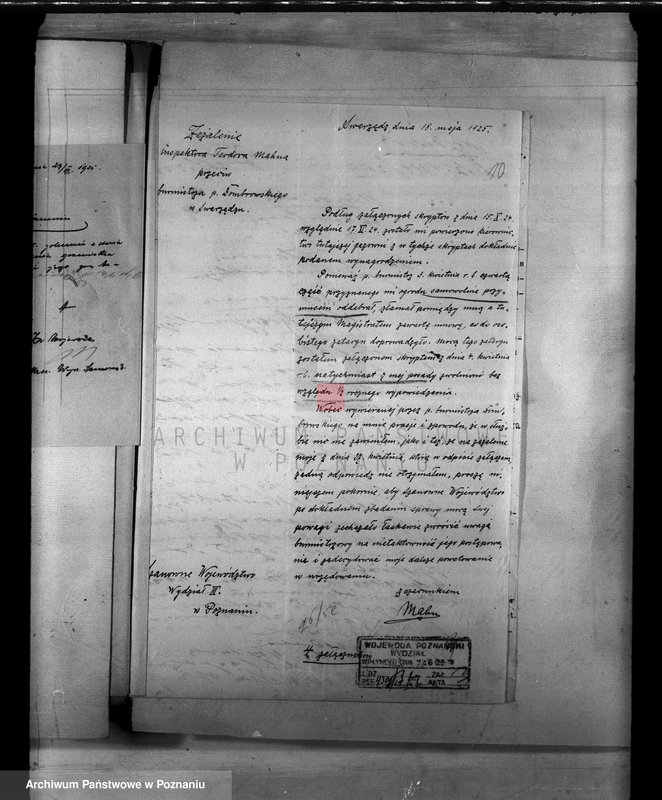 Swarzędz dnia 18. maja 1925.
Zażalenie
inspektora Teodora Mahna
przeciw
burmistrza p. Dombrowskiego
w Swarzędzu.
10
Podług załączonych skryptów z dnia 15.X.24.
względnie 17.X.24. zostało mi powierzone kierownic-
two tutejszej gazowni z w tychże skryptach dokładnie
podanem wynagrodzeniem.
Ponieważ p. burmistrz 3. kwietnia r. b. czwartą
część przyznanego mi ogrodu samowolnie przy-
musem odebrał, złamał pomiędzy mną a tu-
tejszym Magistratem zawartą umowę, co do oso-
bistego zatargu doprowadziło. Mocą tego zatargu
zostałem załączonem skryptem z dnia 4. kwietnia
r. b. natychmiast z mej posady zwolniony bez
względu ½ rocznego wypowiedzenia.
Wobec wywieranej przez p. burmistrza Dom-
browskiego na mnie presje i spowodu, że w służ-
bie nic nie zawiniłem, jako i też, że na zażalenie
moje z dnia kwietnia, którą w odpisie załączam,
żadną odpowiedź nie otrzymałem, proszę ni-
niejszem pokornie, aby Szanowne Województwo
po dokładnem zbadaniu sprawy mocą swej
powagi zechciało łaskawie zwrócić uwagę
burmistrzowy na nietaktowność jego postępowa-
nia i zadecydować moje dalsze pozostawanie
w urzędowaniu.
Z szacunkiem
Mahn
Szanowne Województwo
Wydział III.
w Poznaniu.
4 załączników
WOJEWODA POZNAŃSKI
WYDZIAŁ
WPŁYNĘŁO DNIA
L. DZ. ZAŁ.
AKTA
ARCHIWUM PAŃSTWOWE
W POZNANIU
Archiwum Państwowe w Poznaniu